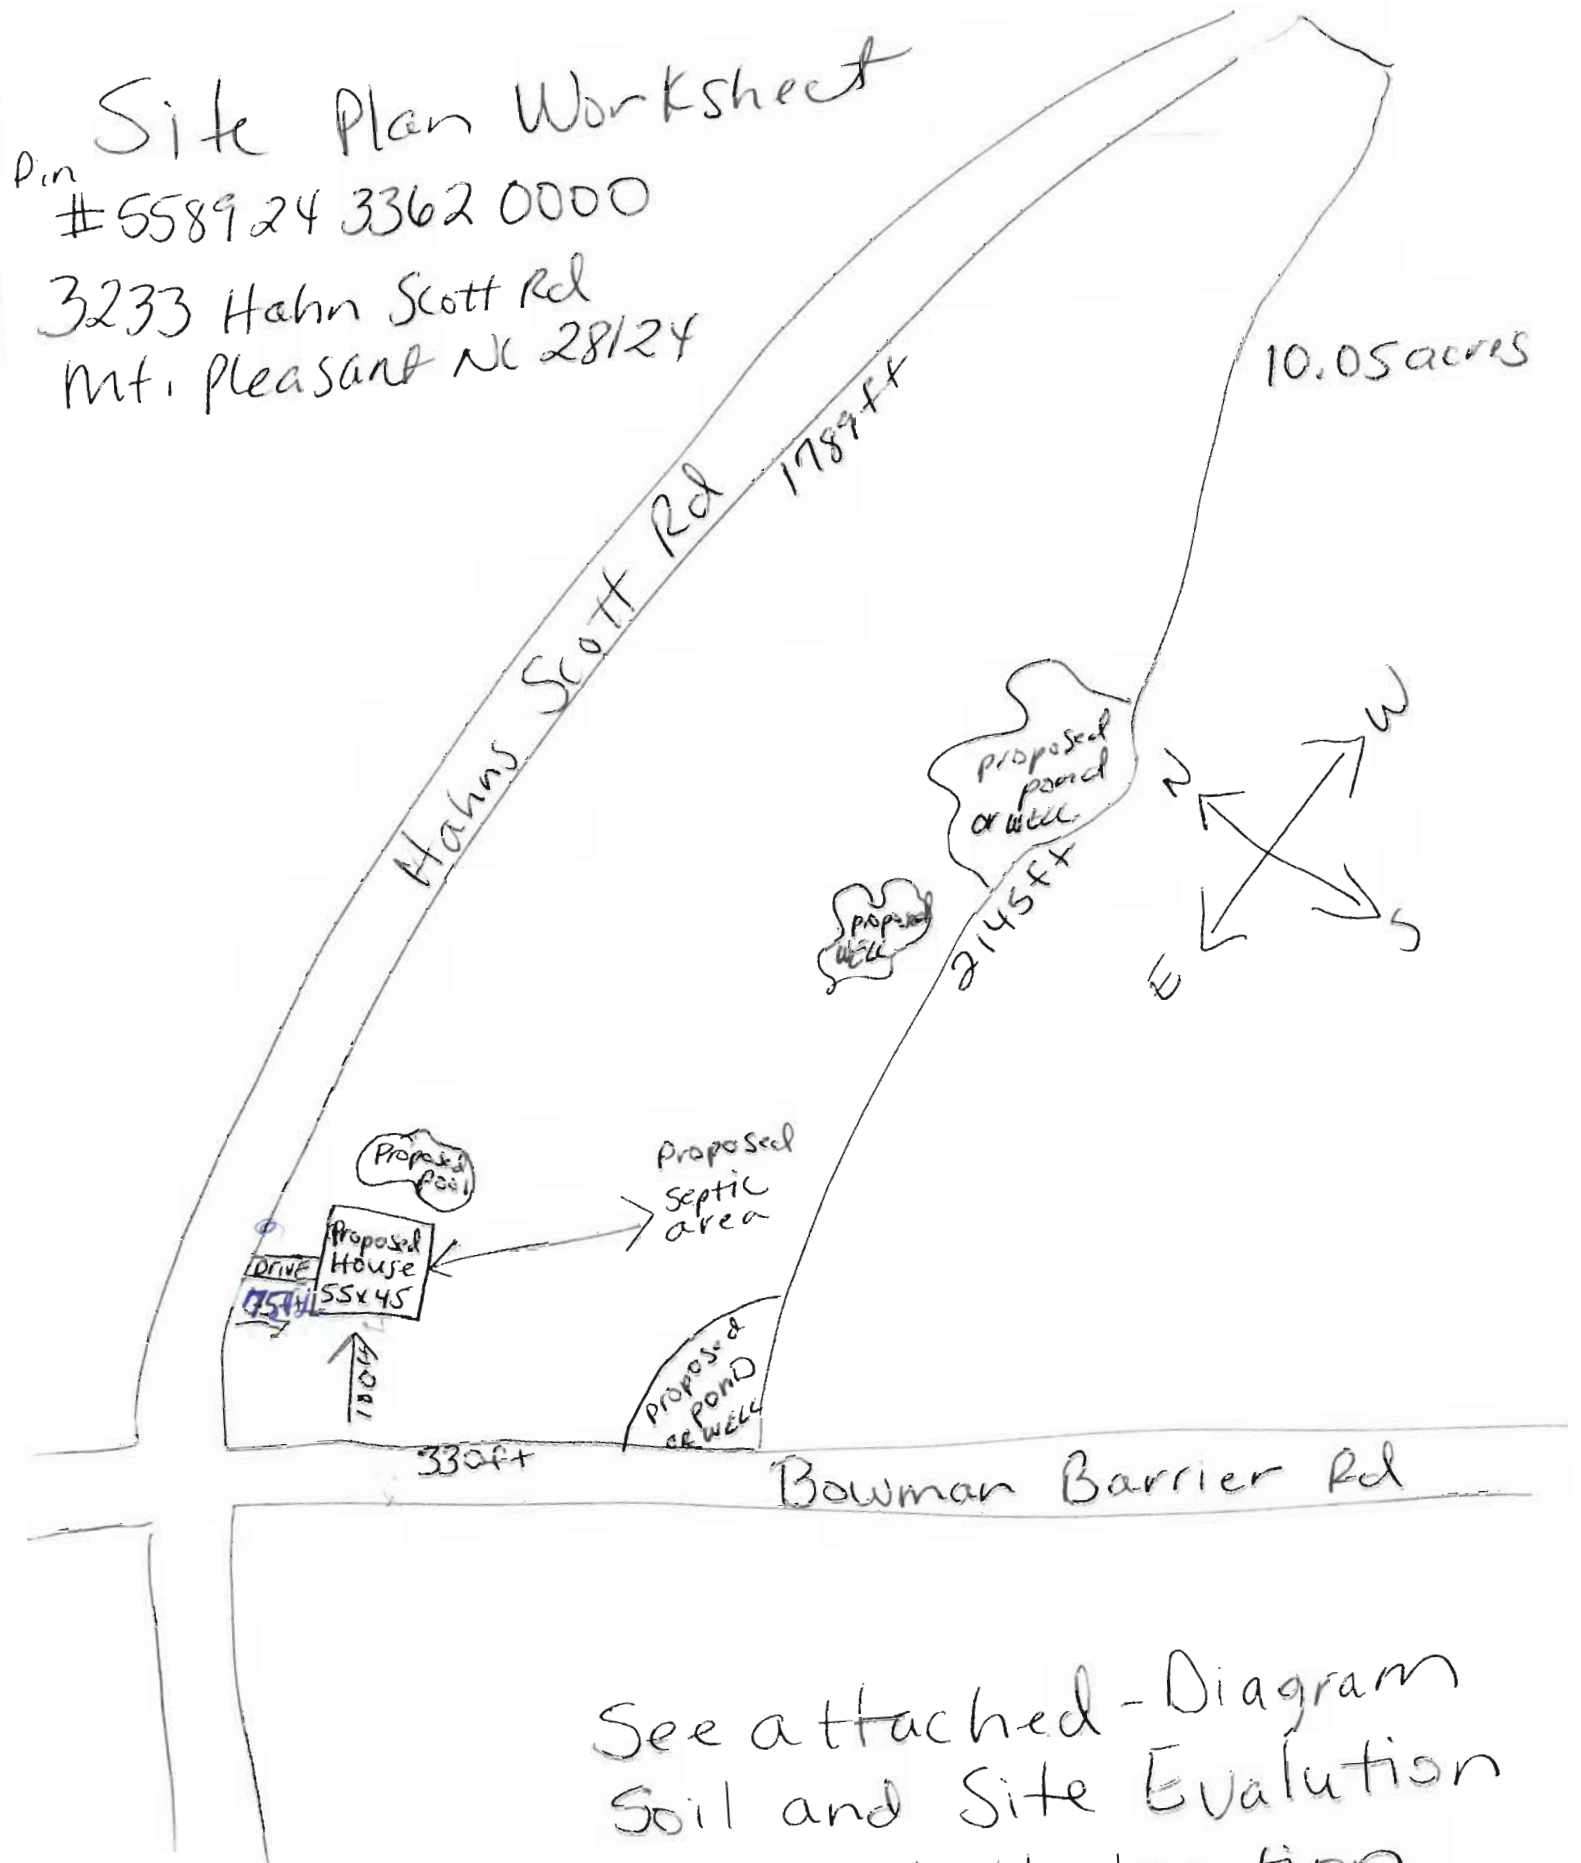 Site Plan Worksheet
Pin
#5589 24 3362 0000
3233 Hahn Scott Rd
Mt. Pleasant NC 28124
10.05 acres
1789 ft
Hahns Scott Rd
proposed
pond
or WELL
W
N
S
E
proposed
WELL
2145 ft
Proposed
pool
Proposed
septic
area
Proposed
House
55x45
DRIVE
75ft
100ft
proposed
ponD
OR WELL
330ft
Bowman Barrier Rd
See attached - Diagram
Soil and Site Evalution